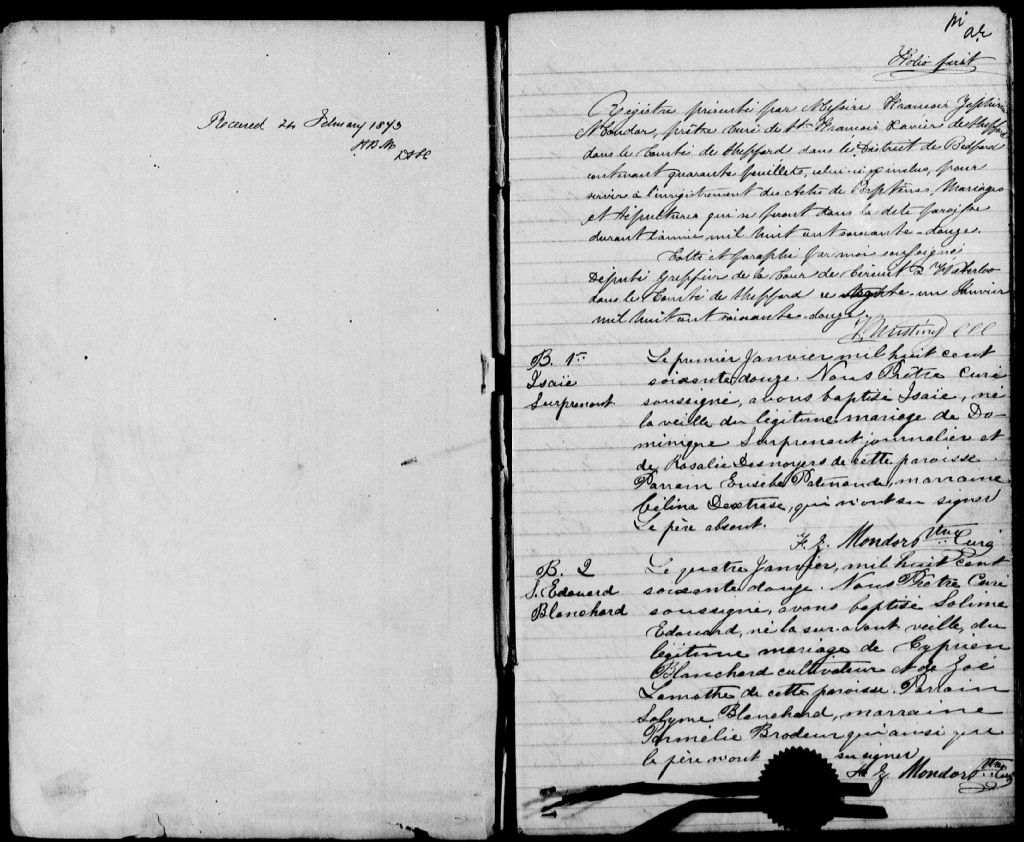 Received 24 February 1873
Folio first
Registre présenté par Messire François Zéphirin
Mondor, prêtre Curé de St. François Xavier de Shefford
dans le Comté de Shefford dans le District de Bedford
contenant quarante feuillets, celui-ci inclus, pour
servir à l'enregistrement des Actes de Baptêmes, Mariages
et Sépultures qui se feront dans la dite paroisse
durant l'année mil huit cent soixante-douze.
Cotté et paraphé par moi soussigné
Député Greffier de la Cour de Circuit à Waterloo
dans le Comté de Shefford ce un Janvier
mil huit cent soixante-douze.
B. 1er
Isaïe
Surprenant
Le premier Janvier mil huit cent
soixante douze. Nous Prêtre Curé
soussigné, avons baptisé Isaïe, né
la veille du légitime mariage de Do-
minique Surprenant journalier et
de Rosalie Desnoyers de cette paroisse.
Parrain Eusèbe Patenaude, marraine
Célina Dextrase, qui n'ont su signer
Le père absent.
F. Z. Mondor Ptre Curé
B. 2
S. Edouard
Blanchard
Le quatre Janvier, mil huit cent
soixante douze. Nous Prêtre Curé
soussigné, avons baptisé Solime
Edouard, né la sur-avant veille, du
légitime mariage de Cyprien
Blanchard cultivateur et de Zoé
Lamothe de cette paroisse. Parrain
Solyme Blanchard, marraine
Parmélie Brodeur qui ainsi que
le père n'ont su signer
F. Z. Mondor Ptre Curé